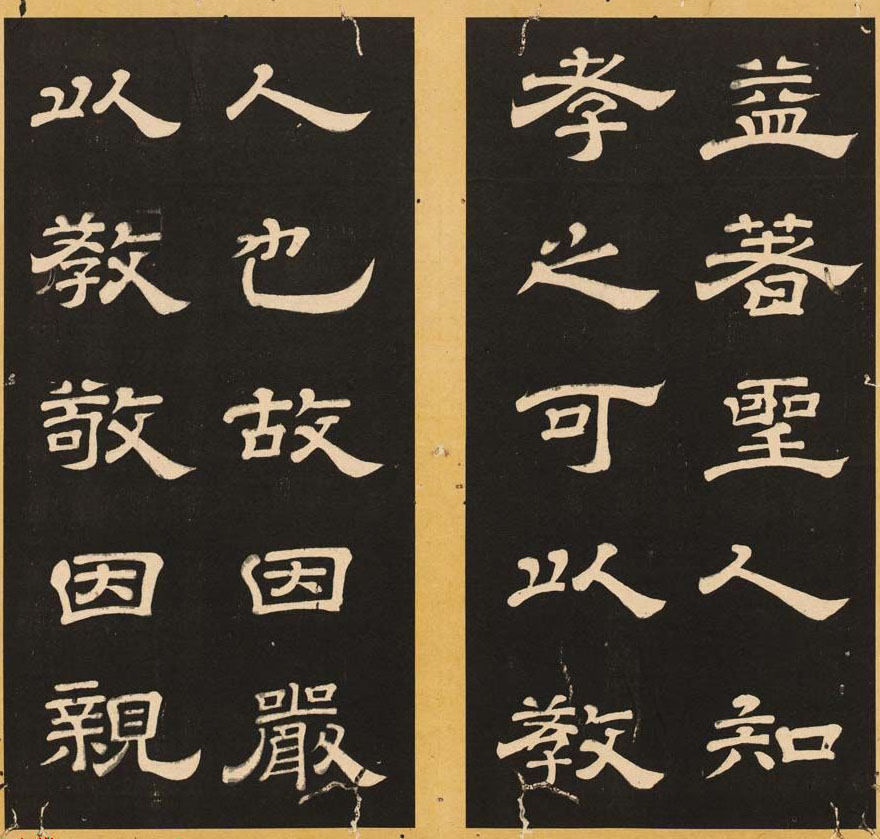 益著聖人知
孝之可以教
人也故因嚴
以教敬因親